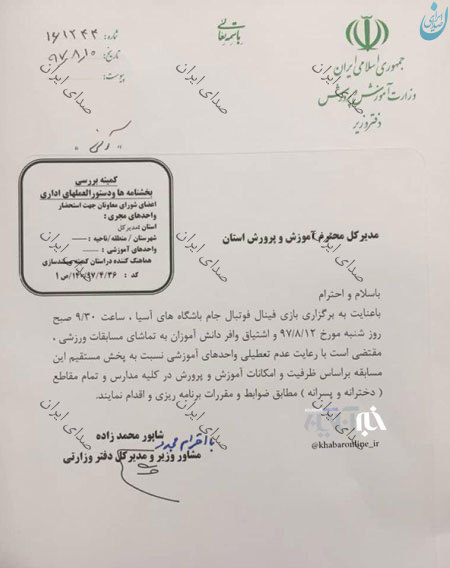 باسمه تعالی
جمهوری اسلامی ایران
وزارت آموزش و پرورش
دفتر وزیر
شماره: ۱۶۱۲۴۴
تاریخ: ۹۷/۸/۱۰
پیوست:
صدای ایران
کمیته بررسی
بخشنامه ها و دستورالعملهای اداری
اعضای شورای معاونان جهت استحضار
واحدهای مجری:
استان: مدیرکل
شهرستان / منطقه/ناحیه :
واحدهای آموزشی :
هماهنگ کننده در استان کمیته وکدسازی
کد : ۱۴۰/۹۷/۴/۳۶/ص۱
مدیرکل محترم آموزش و پرورش استان
باسلام و احترام
باعنایت به برگزاری بازی فینال فوتبال جام باشگاه های آسیا ، ساعت ۹/۳۰ صبح
روز شنبه مورخ ۹۷/۸/۱۲ و اشتیاق وافر دانش آموزان به تماشای مسابقات ورزشی ،
مقتضی است با رعایت عدم تعطیلی واحدهای آموزشی نسبت به پخش مستقیم این
مسابقه براساس ظرفیت و امکانات آموزش و پرورش در کلیه مدارس و تمام مقاطع
( دخترانه و پسرانه ) مطابق ضوابط و مقررات برنامه ریزی و اقدام نمایند.
خبرآنلاین
@khabaronline_ir
با احترام مجدد
شاپور محمد زاده
مشاور وزیر و مدیرکل دفتر وزارتی